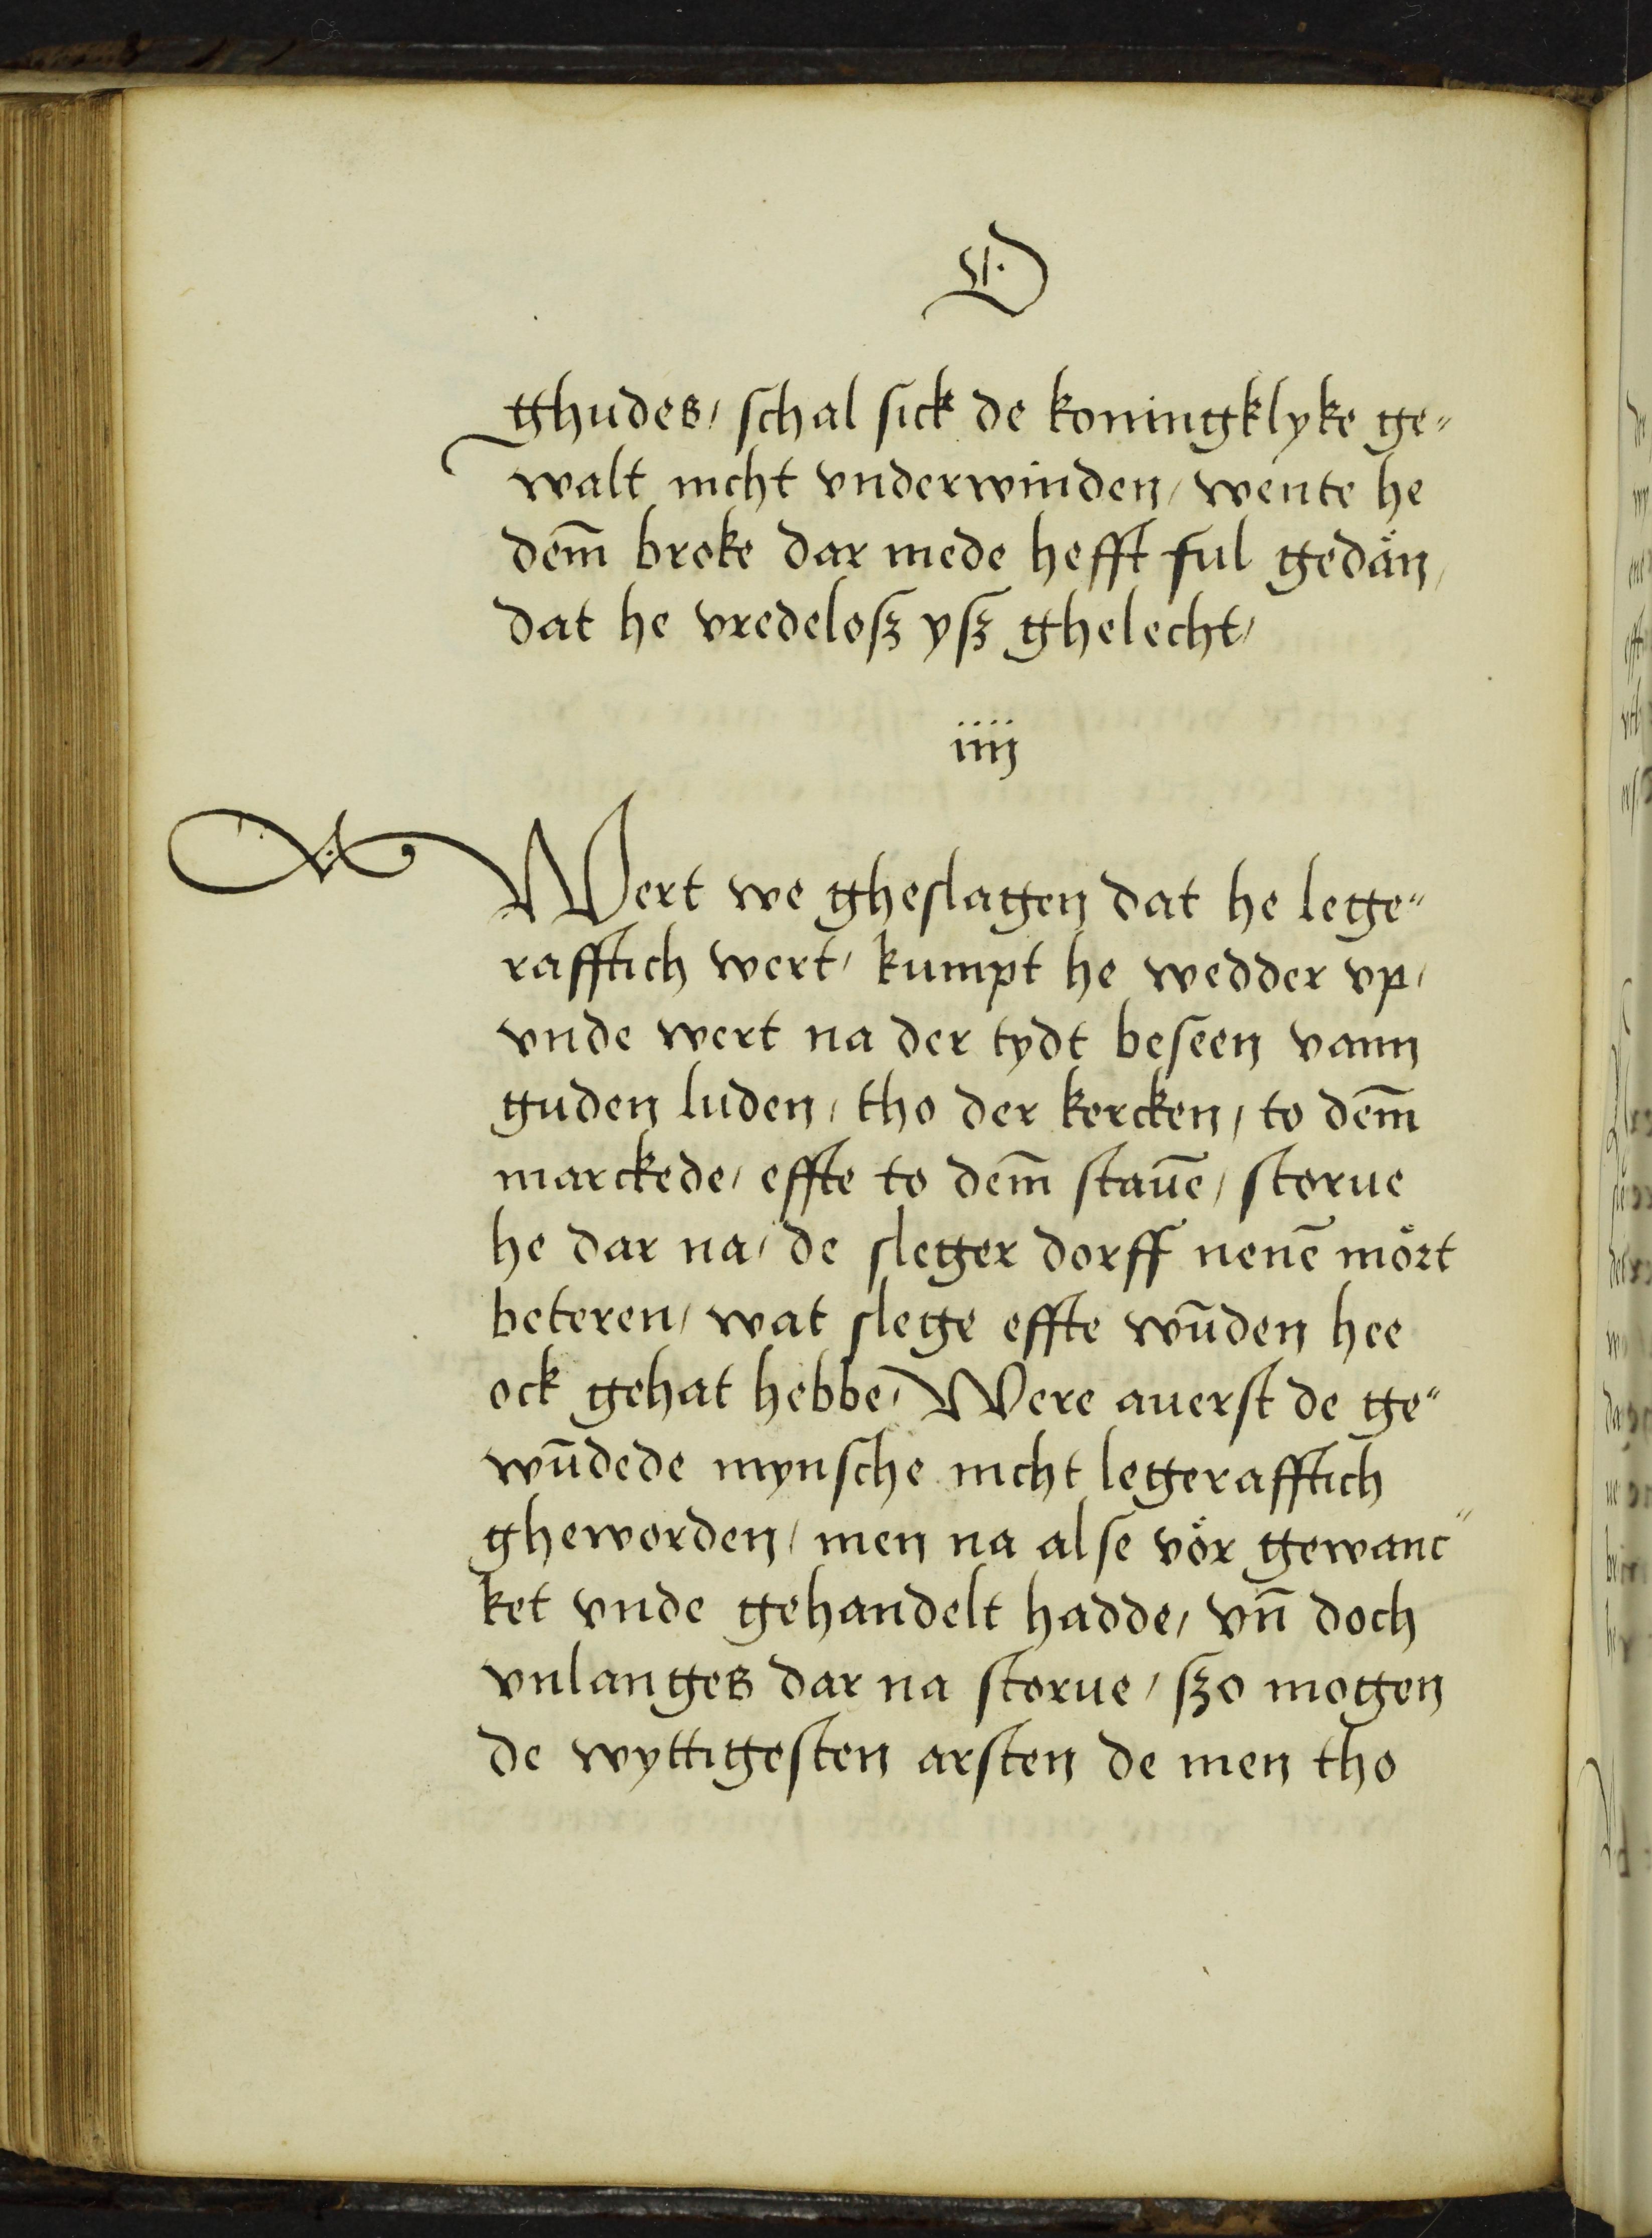 V
ghudes/ schal sick de koningklyke ge⸗
walt nicht vnderwinden/ wente he
dem̄ broke dar mede hefft ful gedån/
dat he vredelosz ysz ghelecht/
iiij
Wert we gheslagen dat he lege⸗
rafftich wert/ kumpt he wedder vp/
vnde wert na der tydt beseen vann
guden luden/ tho der kercken/ to dem̄
marckede/ effte to dem̄ staūe/ storue
he dar na/ de sleger dorff nenē mo̊rt
beteren/ wat slege effte wūden hee
ock gehat hebbe/ Were auerst de ge⸗
wūdede mynsche nicht legerafftich
gheworden/ men na alse vo̊r gewanc⸗
ket vnde gehandelt hadde/ vn̄ doch
vnlanges dar na storue/ szo mogen
de wyttigesten arsten de men tho